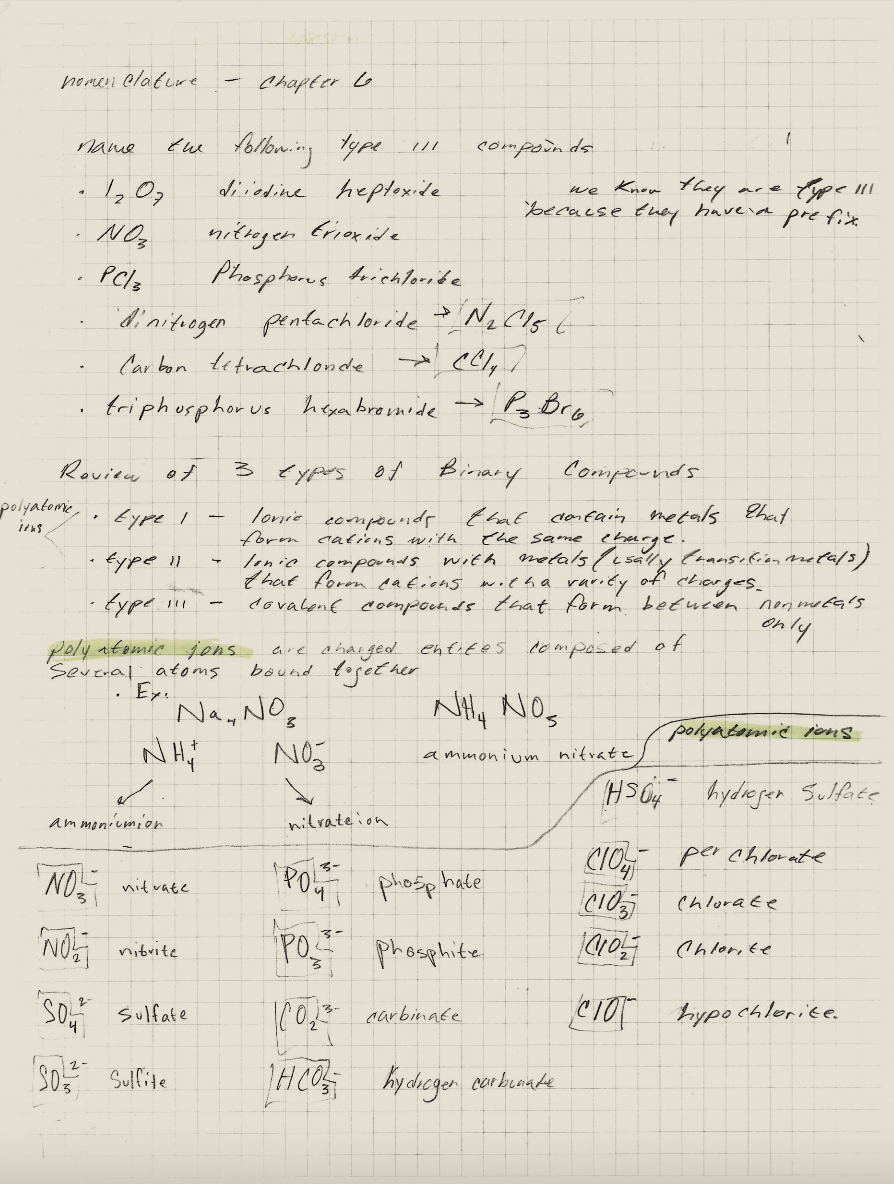 nomenclature – chapter 6
name the following type III compounds
• I₂O₇ diiodine heptoxide
we know they are type III
because they have a prefix.
• NO₃ nitrogen trioxide
• PCl₃ Phosphorus trichloride
• dinitrogen pentachloride → N₂Cl₅
• Carbon tetrachloride → CCl₄
• triphosphorus hexabromide → P₃Br₆
Review of 3 types of Binary Compounds
polyatomic
ions
• type I – Ionic compounds that contain metals that
form cations with the same charge.
• type II – Ionic compounds with metals (usally transition metals)
that form cations with a varity of charges.
• type III – covalent compounds that form between nonmetals
only
polyatomic ions are charged entites composed of
Several atoms bound together
• Ex.
Na₄NO₃ NH₄NO₅
NH₄⁺ NO₃⁻ ammonium nitrate
ammoniumion nitrateion
polyatomic ions
HSO₄⁻ hydrogen Sulfate
ClO₄⁻ perchlorate
NO₃⁻ nitrate PO₄³⁻ phosphate ClO₃⁻ chlorate
NO₂⁻ nitrite PO₃³⁻ phosphite ClO₂⁻ Chlorite
SO₄²⁻ sulfate CO₂³⁻ carbinate ClO⁻ hypochlorite.
SO₃²⁻ Sulfite HCO₃⁻ hydrogen carbinate